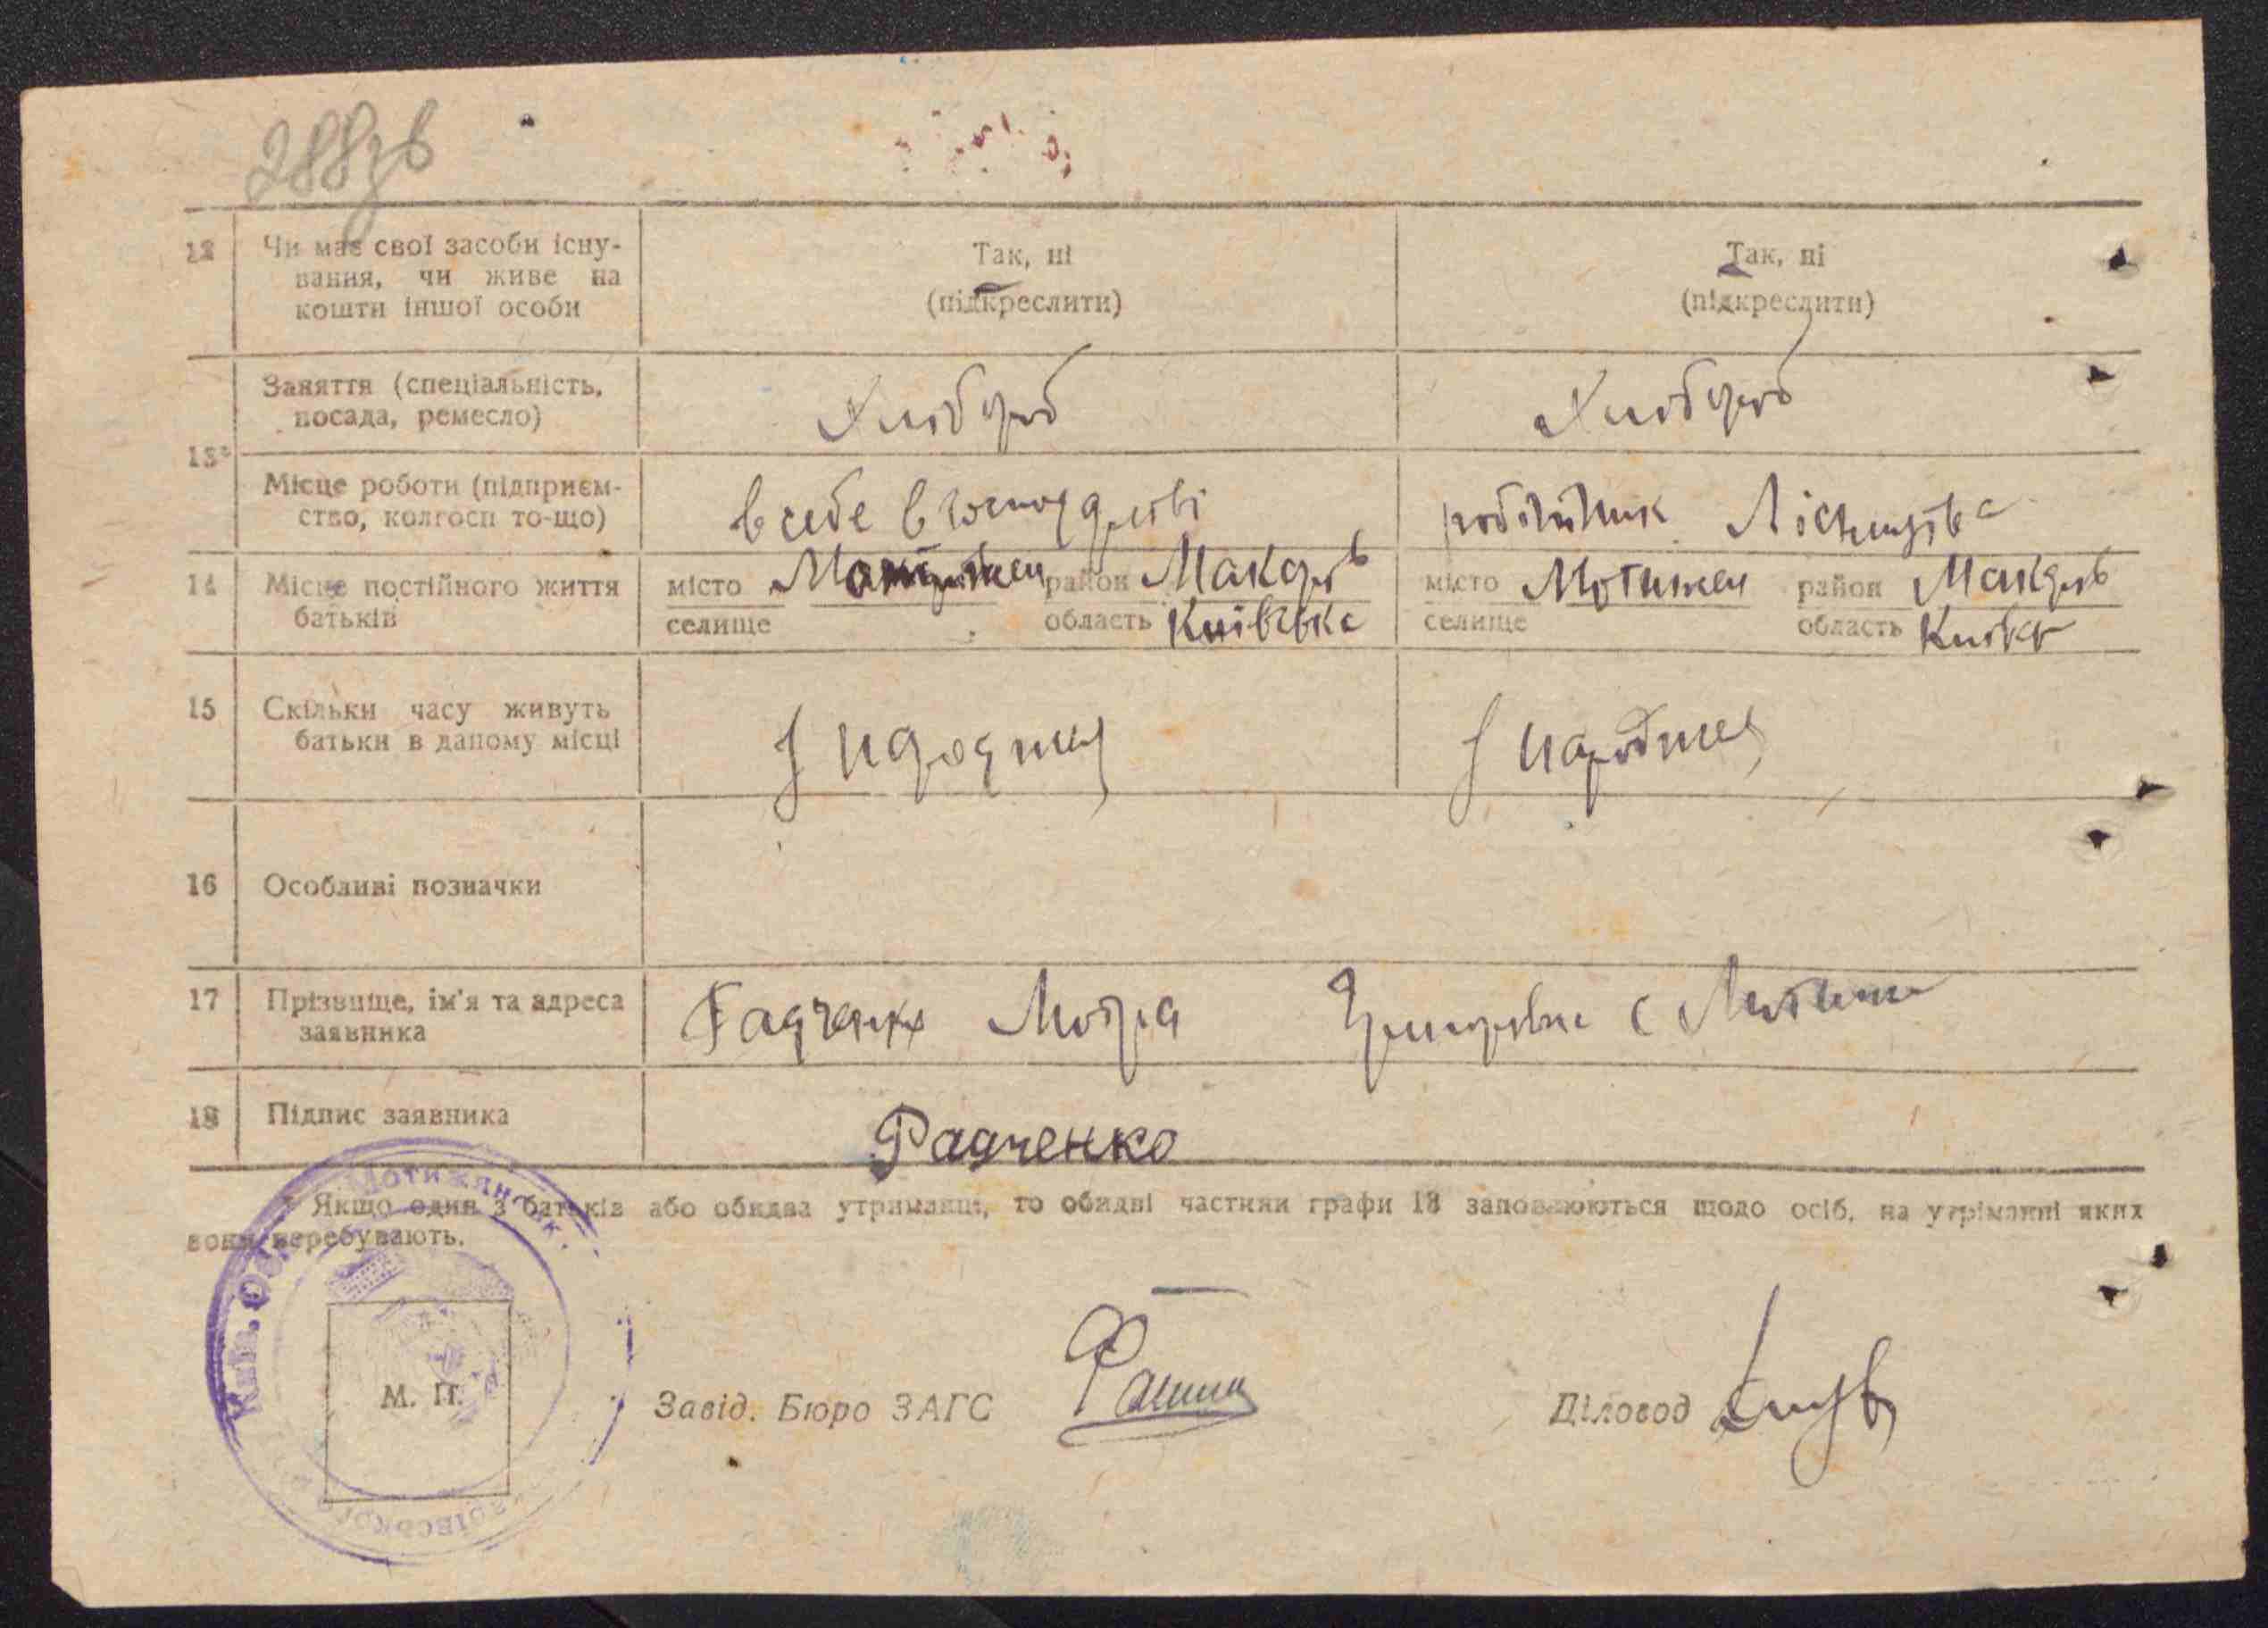 288зв
12 Чи має свої засоби існу-
вання, чи живе на
кошти іншої особи
Так, ні
(підкреслити)
Так, ні
(підкреслити)
13*
Заняття (спеціальність,
посада, ремесло)
Хлібороб
Хлібороб
Місце роботи (підприєм-
ство, колгосп то-що)
в себе в господарстві
робітник Лісництва
14 Місце постійного життя
батьків
місто Мотижен район Макарів
селище область Київська
місто Мотижен район Макарів
селище область Київс
15 Скільки часу живуть
батьки в даному місці
З народження
З народження
16 Особливі позначки
17 Прізвище, ім'я та адреса
заявника
Радченко Мотря Григорівна с Мотижин
18 Підпис заявника
Радченко
* Якщо один з батьків або обидва утриманці, то обидві частини графи 13 заповнюються щодо осіб, на утріманні яких
вони перебувають.
Київ. Обл. Мотижинськ.
М. П.
Завід. Бюро ЗАГС
Діловод